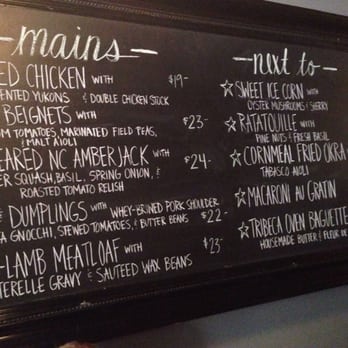 mains
ED CHICKEN WITH $19-
ENTED YUKONS & DOUBLE CHICKEN STOCK
BEIGNETS WITH $23-
OM TOMATOES, MARINATED FIELD PEAS,
& MALT AIOLI
EARED NC AMBERJACK WITH $24-
ER SQUASH, BASIL, SPRING ONION, &
ROASTED TOMATO RELISH
& DUMPLINGS WITH WHEY-BRINED PORK SHOULDER $22-
A GNOCCHI, STEWED TOMATOES, & BUTTER BEANS
-LAMB MEATLOAF WITH $23-
TERELLE GRAVY & SAUTEED WAX BEANS
next to
☆ SWEET ICE CORN WITH
OYSTER MUSHROOMS & SHERRY
☆ RATATOUILLE WITH
PINE NUTS & FRESH BASIL
☆ CORNMEAL FRIED OKRA
TABASCO AIOLI
☆ MACARONI AU GRATIN
☆ TRIBECA OVEN BAGUETTE
HOUSEMADE BUTTER & FLEUR